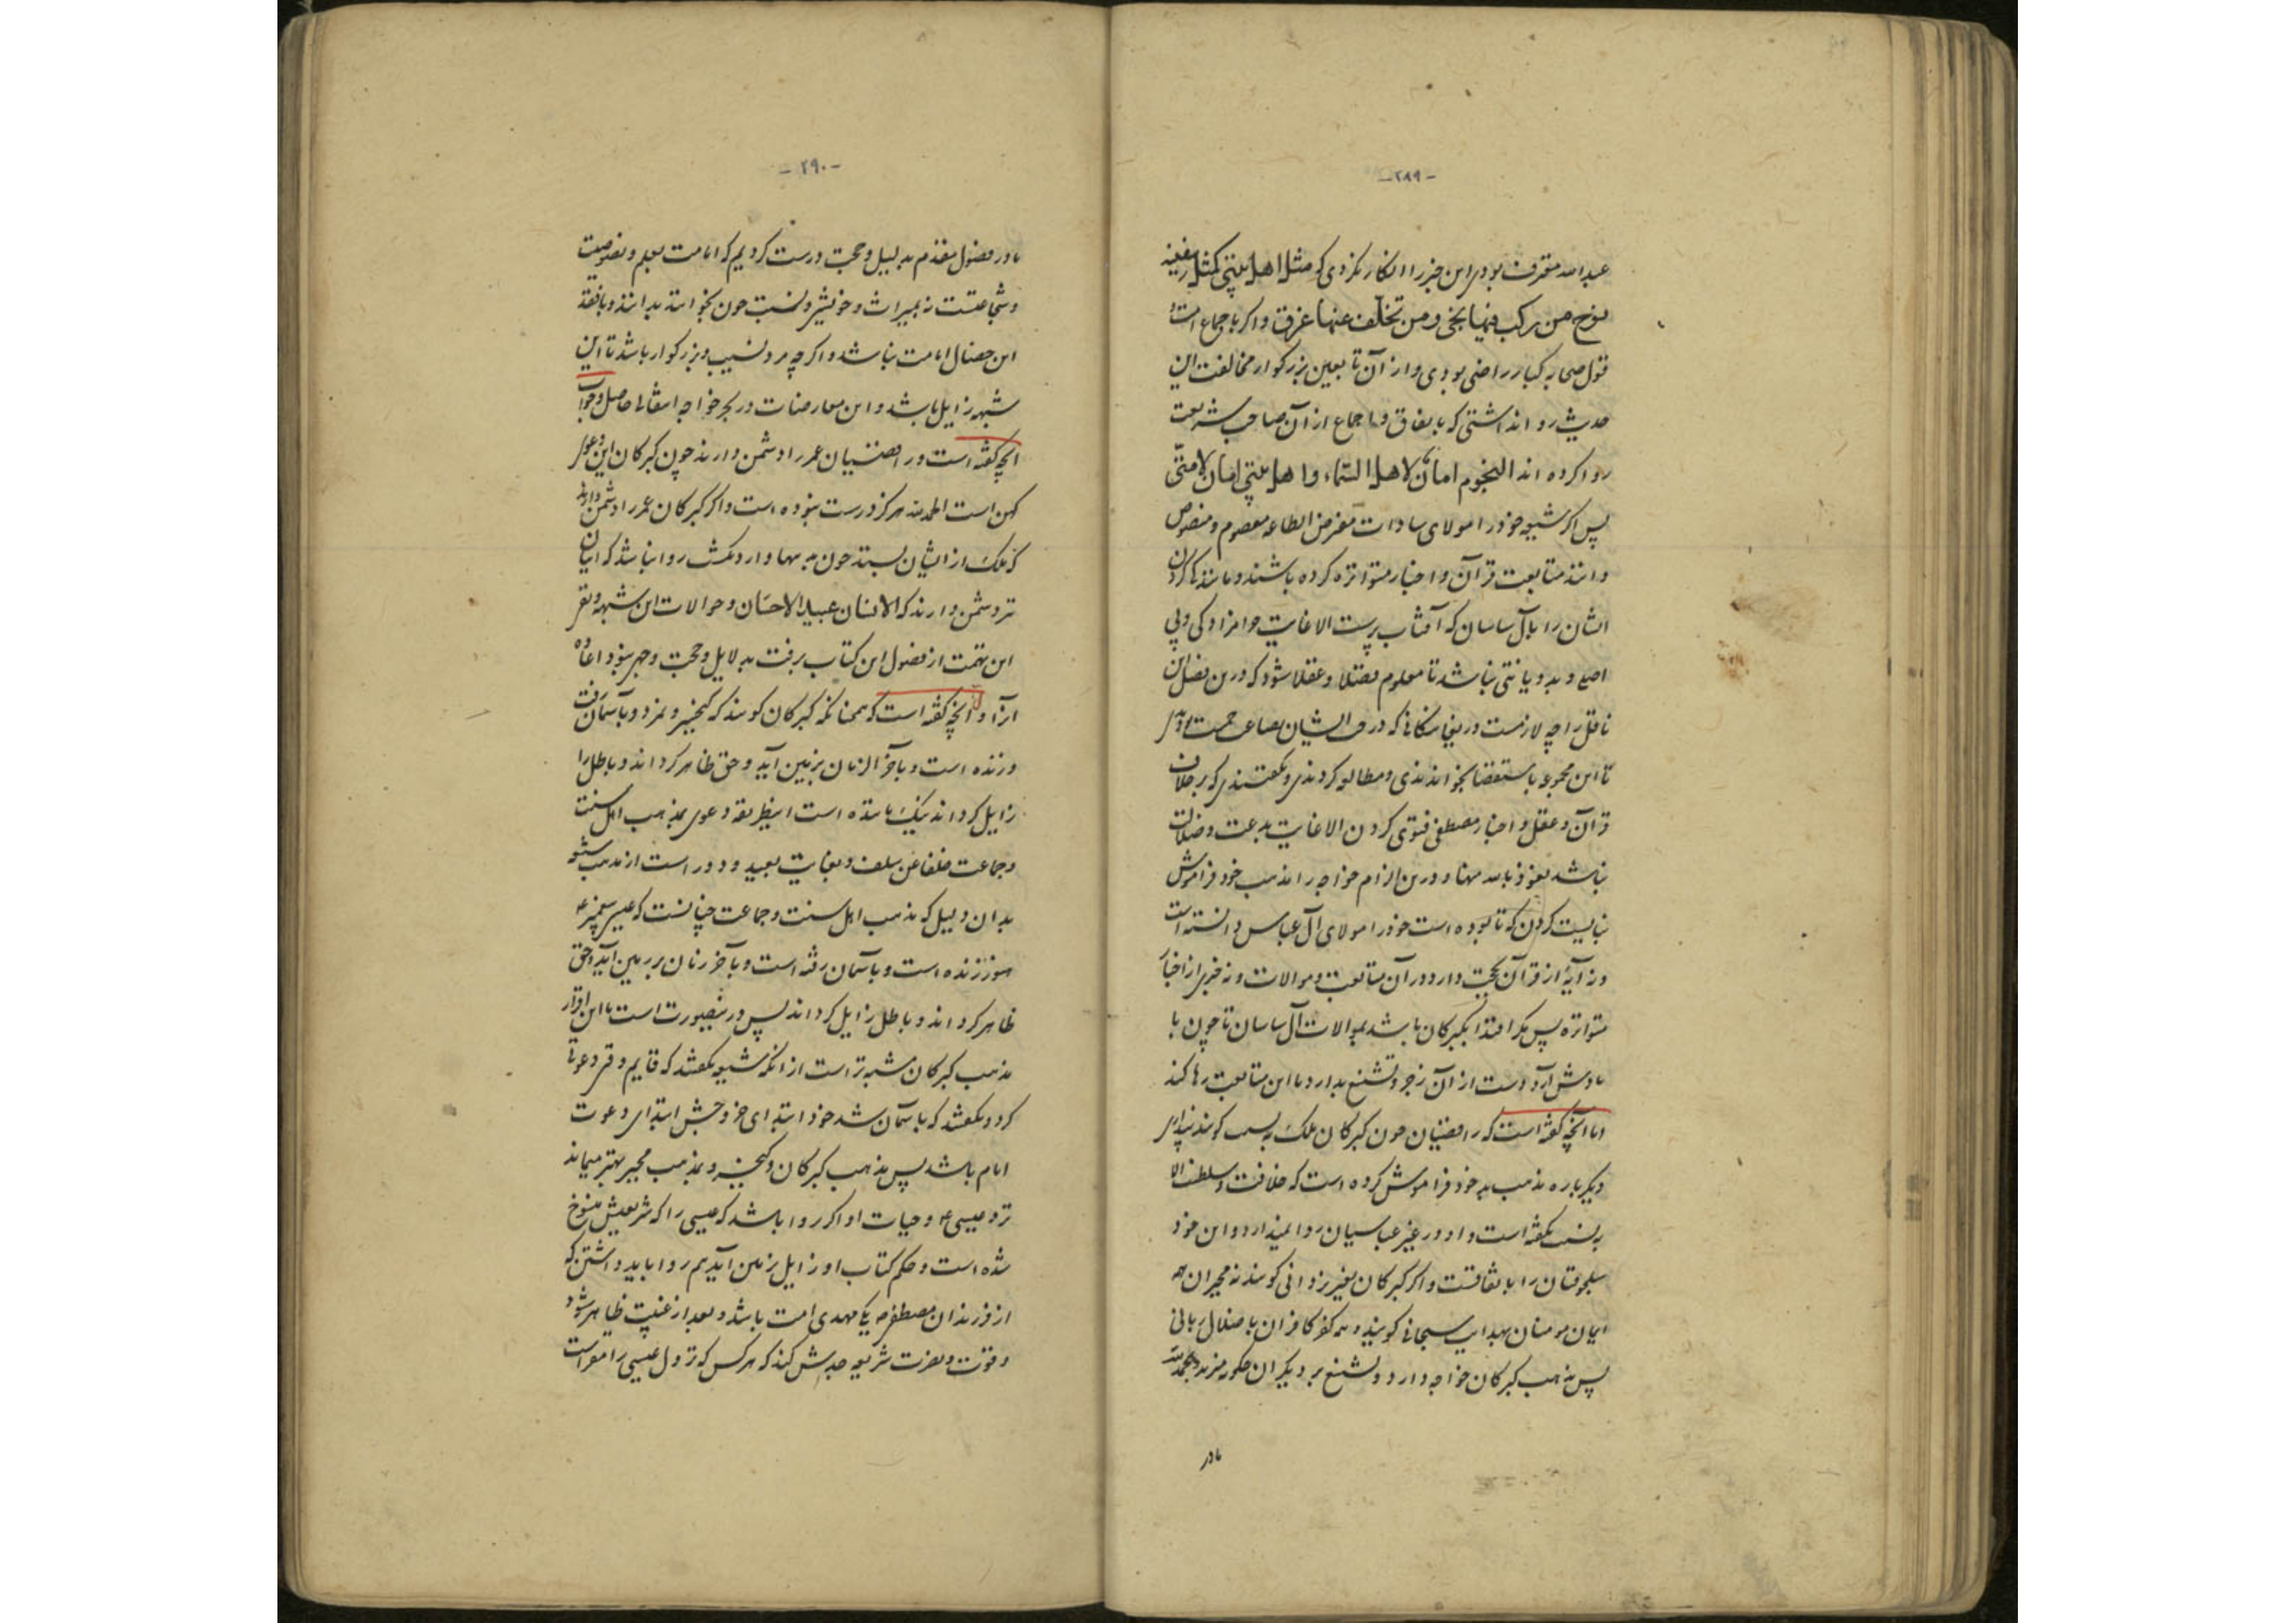 -۲۸۹-
عبداسه مقرف بودی این خبر را انکار نکردی که مثل اهل بیتی کمثل سفینه
نوح من رکب فیها نجی و من تخلف عنها غرق و اکر باجماع امت و
قول صحابه کبار راضی بودی و از آن تابعین بزرکوار مخالفت این
حدیث روا نداشتی که باتفاق و اجماع از آن صاحب شریعت
روا کرده اند النجوم امان لاهل السماء و اهل بیتی امان لامتی
پس اکر شیعه خود را مولای سادات مفترض الطاعه معصوم و منصوص
دانند متابعت قرآن و اخبار متواتره کرده باشند و مانند کردن
ایشان را بآل ساسان که آفتاب پرست الا غایت حرامزادکی و بی
اصلی و بد دیانتی نباشد تا معلوم فضلا و عقلا شود که درین فصل این
ناقل را چه لازمست دریغا
تا این مجموعه باستقصا بخواندندی و مطالعه کردندی و بکفتندی که برخلاف
قرآن و عقل و اخبار مصطفی فتوی کردن الا غایت بدعت و ضلالت
نباشد نعوذ بالله منها و درین الزام خواجه را مذهب خود فراموش
نبایست کردن که تا بوده است خود را مولای آل عباس دانسته است
و نه آیهٔ از قرآن بحجت دارد در آن متابعت و موالات و نه خبری از اخبار
متواتره پس مکر اقتدا بکبرکان باشد بموالات آل ساسان تا چون با
یادش آرد دست از آن زجر و تشنیع بدارد یا این متابعت رها کند
اما آنچه کفته است که رافضیان چون کبرکان ملک به نسب کویند پنداری
دیکرباره مذهب بد خود فراموش کرده است که خلافت و سلطنت الا
به نسب نکفته است و او در غیر عباسیان روا نمیدارد و این خود
سلجوقیان را باتفاقست و اکر کبرکان بغیر یزدانی کویند نه مجبران همه
ایمان مومنان بهدایت سبحانی کویند و همه کفر کافران باضلال ربانی
پس مذهب کبرکان خواجه دارد و تشنیع بر دیکران چکونه میزند و بحمدلله
مادر
-۲۹۰-
مادر فصول مقدم بدلیل و حجت درست کردیم که امامت بعلم و نصوصیت
و شجاعتست نه بمیراث و خویشی و نسبت چون بخواند بداند و بافقد
این خصال امامت نباشد و اکرچه مرد نسیب و بزرکوار باشد تا این
شبهه زایل باشد و این معارضات در بحر خواجه انتقالی حاصل و جواب
آنچه کفته است و رافضیان عمر را دشمن دارند چون کبرکان این دعوی
کهن است الحمدلله هرکز درست نبوده است و اکر کبرکان عمر را دشمن دارند
که ملک از ایشان بستد چون به بها وارد بکشت روا نباشد که ایمان
تر دشمن دارند که الانسان عبید الاحسان و حوالات این شبهه و تقر
این تهمت از فصول این کتاب برفت بدلایل و حجت و خبر نبود اعاده
آنرا و آنچه کفته است که همچنانکه کبرکان کویند که کیخسرو نمرد و بآسمان رفت
و زنده است و بآخر الزمان بزمین آید و حق ظاهر کرداند و باطل را
زایل کرداند نیک باشده است اینطریقه دعوی بمذهب اهل سنت
و جماعت خلفا عن سلف و بغایت بعید و دور است از مذهب شیعه
بدان دلیل که مذهب اهل سنت و جماعت چنانست که عیسی پیغمبر ع
هنوز زنده است و بآسمان رفته است و بآخر زمان بر زمین آید و حق
ظاهر کرداند و باطل زایل کرداند پس درینصورت است با این اقرار
مذهب کبرکان مشبه تر است از آنکه شیعه بکفتند که قایم و قر دعوتی
کرد و نکفتند که بآسمان شد خود ابتدای خروجش ابتدای دعوت
امام باشد پس مذهب کبرکان و کیخسرو بمذهب مجبر بهتر میماند
ترو عیسی ع و حیات او اکر روا باشد که عیسی را که شریعتش منسوخ
شده است و حکم کتاب او زایل بزمین آید هم روا باید داشتن که
از فرزندان مصطفی ص یکی مهدی امت باشد و بعد از غیبت ظاهر شود
و قوت و نصرت شریعه جدش کند که هرکس که نزول عیسی را مقر است